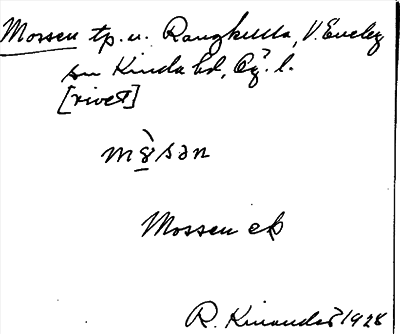 Mossen tp. u. Rangkulla, V. Eneby
sn Kinda hd, Ög. l.
[rivet]
mòsən
Mossen ek
R. Kinander 1928